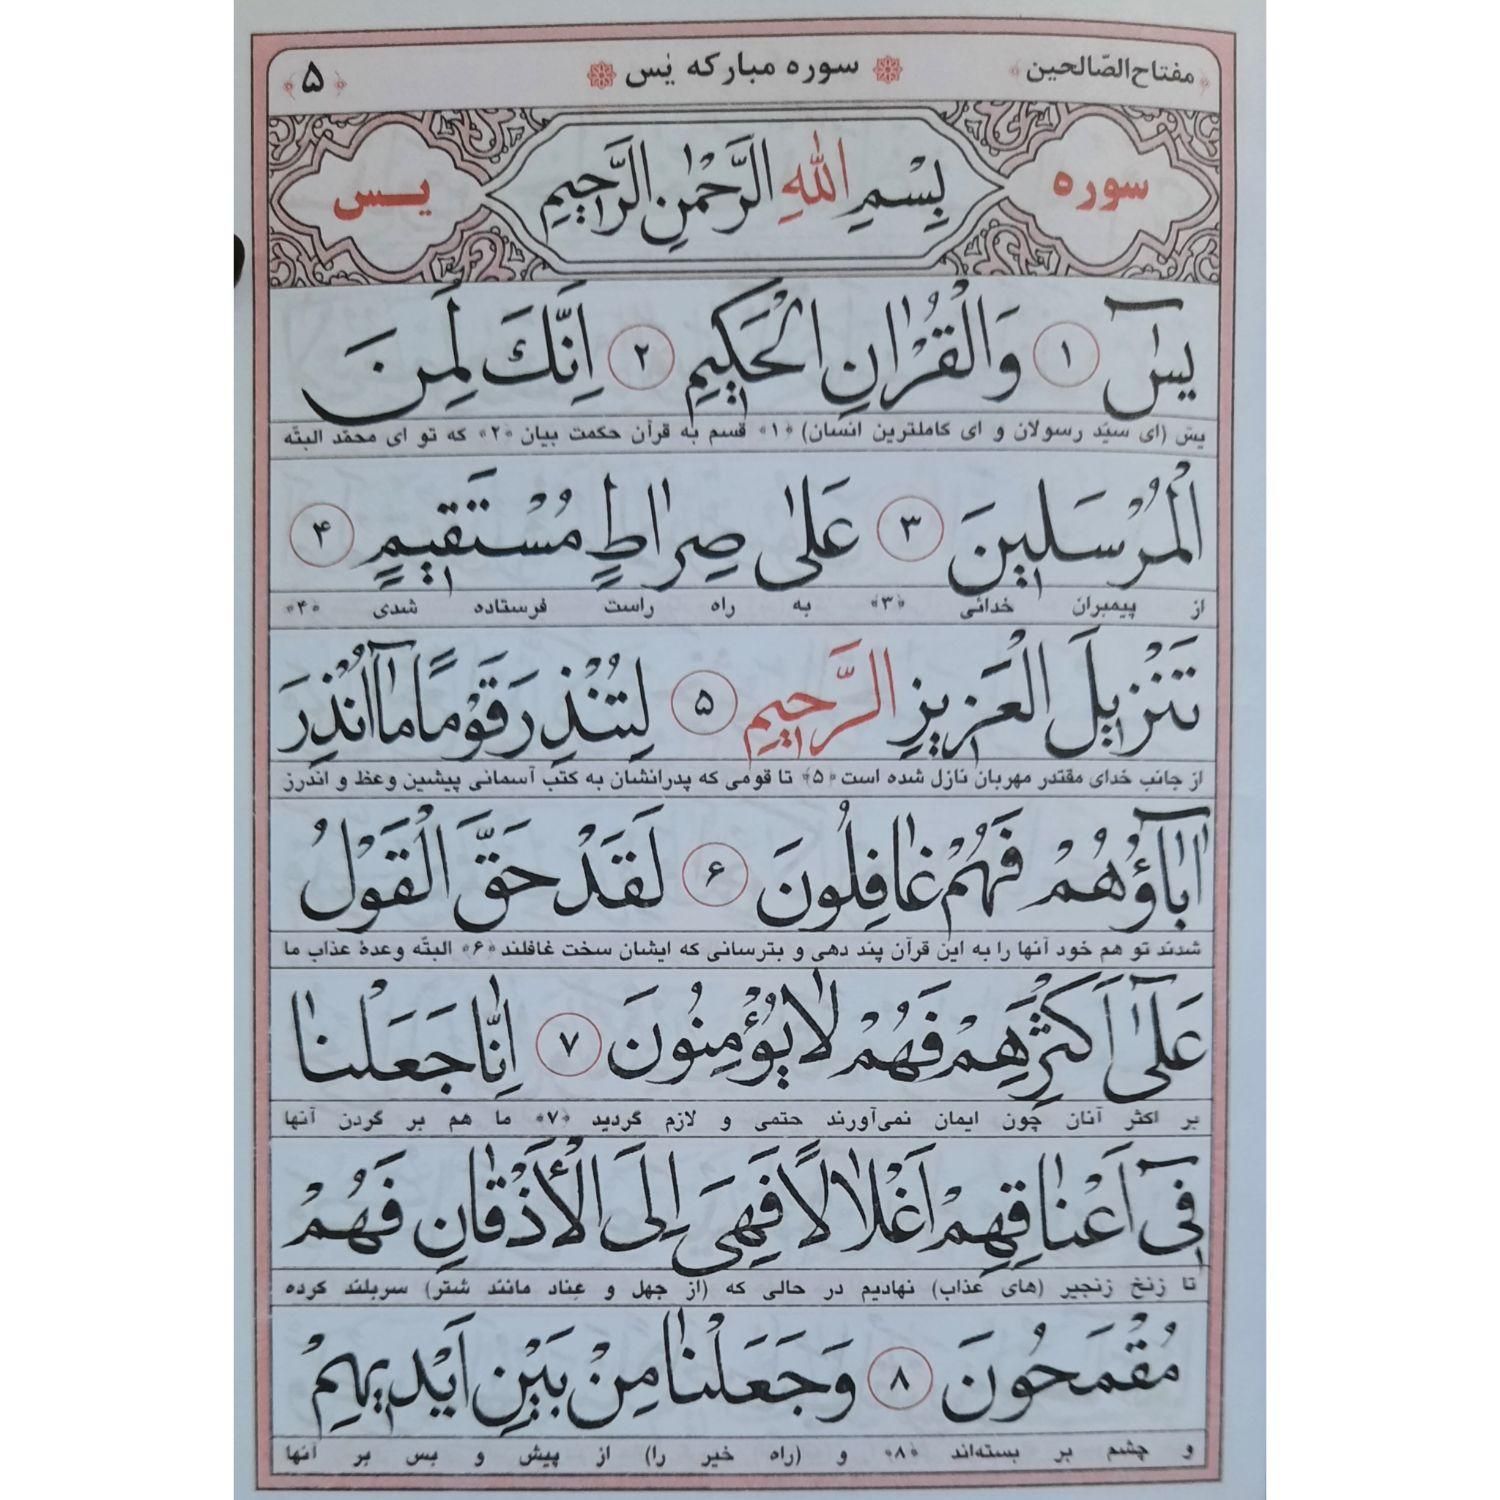 مفتاح الصّالحین سوره مبارکه یٰس ۵
سوره بِسْمِ اللهِ الرَّحْمٰنِ الرَّحیمِ یس
یٰسٓ ﴿۱﴾ وَالْقُرْاٰنِ الْحَکیمِ ﴿۲﴾ اِنَّکَ لَمِنَ
یسَ (ای سیّد رسولان و ای کاملترین انسان) «۱» قسم به قرآن حکمت بیان «۲» که تو ای محمّد البتّه
الْمُرْسَلینَ ﴿۳﴾ عَلٰی صِرٰاطٍ مُسْتَقیمٍ ﴿۴﴾
از پیمبران خدائی «۳» به راه راست فرستاده شدی «۴»
تَنْزیلَ الْعَزیزِ الرَّحیمِ ﴿۵﴾ لِتُنْذِرَ قَوْمًا مٰٓا اُنْذِرَ
از جانب خدای مقتدر مهربان نازل شده است «۵» تا قومی که پدرانشان به کتب آسمانی پیشین وعظ و اندرز
اٰبٰٓاؤُهُمْ فَهُمْ غٰافِلُونَ ﴿۶﴾ لَقَدْ حَقَّ الْقَوْلُ
شدند تو هم خود آنها را به این قرآن پند دهی و بترسانی که ایشان سخت غافلند «۶» البتّه وعدهٔ عذاب ما
عَلٰٓی اَکْثَرِهِمْ فَهُمْ لٰا یُؤْمِنُونَ ﴿۷﴾ اِنّٰا جَعَلْنٰا
بر اکثر آنان چون ایمان نمی‌آورند حتمی و لازم گردید «۷» ما هم بر گردن آنها
فیٓ اَعْنٰاقِهِمْ اَغْلٰالًا فَهِیَ اِلَی الْأَذْقٰانِ فَهُمْ
تا زنخ زنجیر (های عذاب) نهادیم در حالی که (از جهل و عناد مانند شتر) سربلند کرده
مُقْمَحُونَ ﴿۸﴾ وَجَعَلْنٰا مِنْ بَیْنِ اَیْدیهِمْ
و چشم بر بسته‌اند «۸» و (راه خیر را) از پیش و بس بر آنها